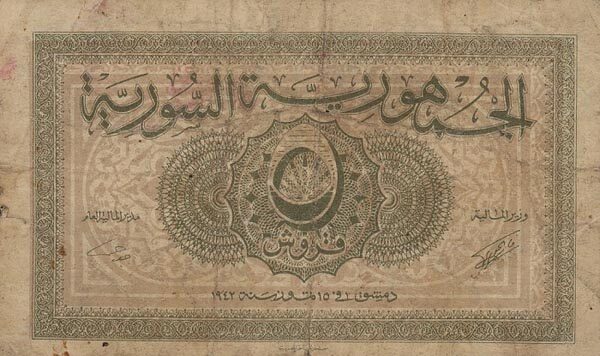 الجمهورية السورية
٥
قروش
وزير المالية
مدير المالية العام
دمشق في ١٥ تموز سنة ١٩٤٢